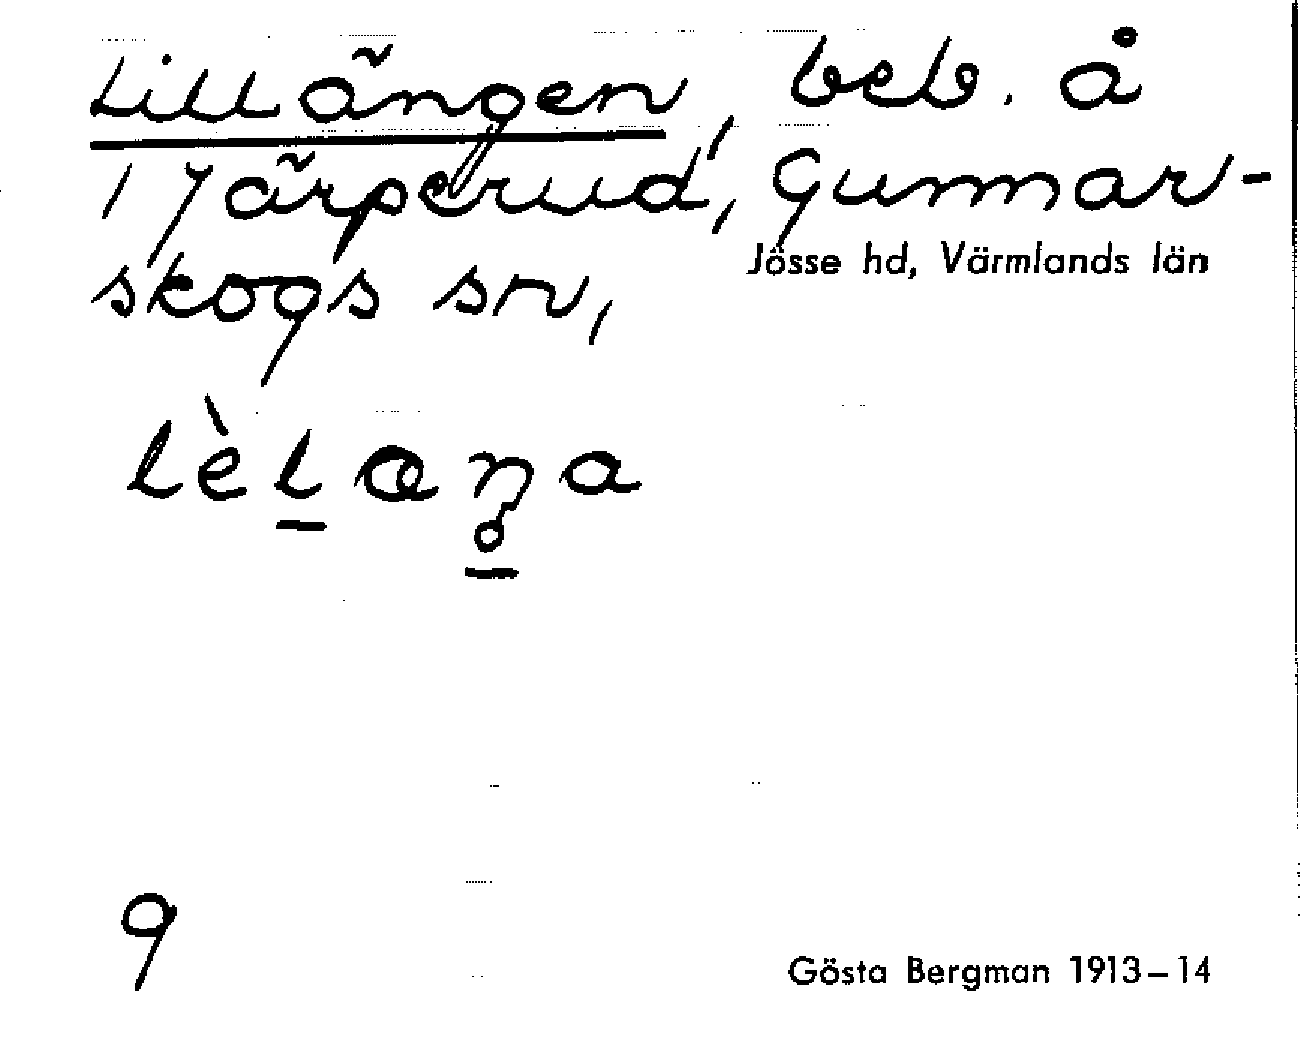 Lillängen, beb. å
1 Järperud, Gunnar-
skogs sn,
Jösse hd, Värmlands län
lèlaŋa
9
Gösta Bergman 1913–14